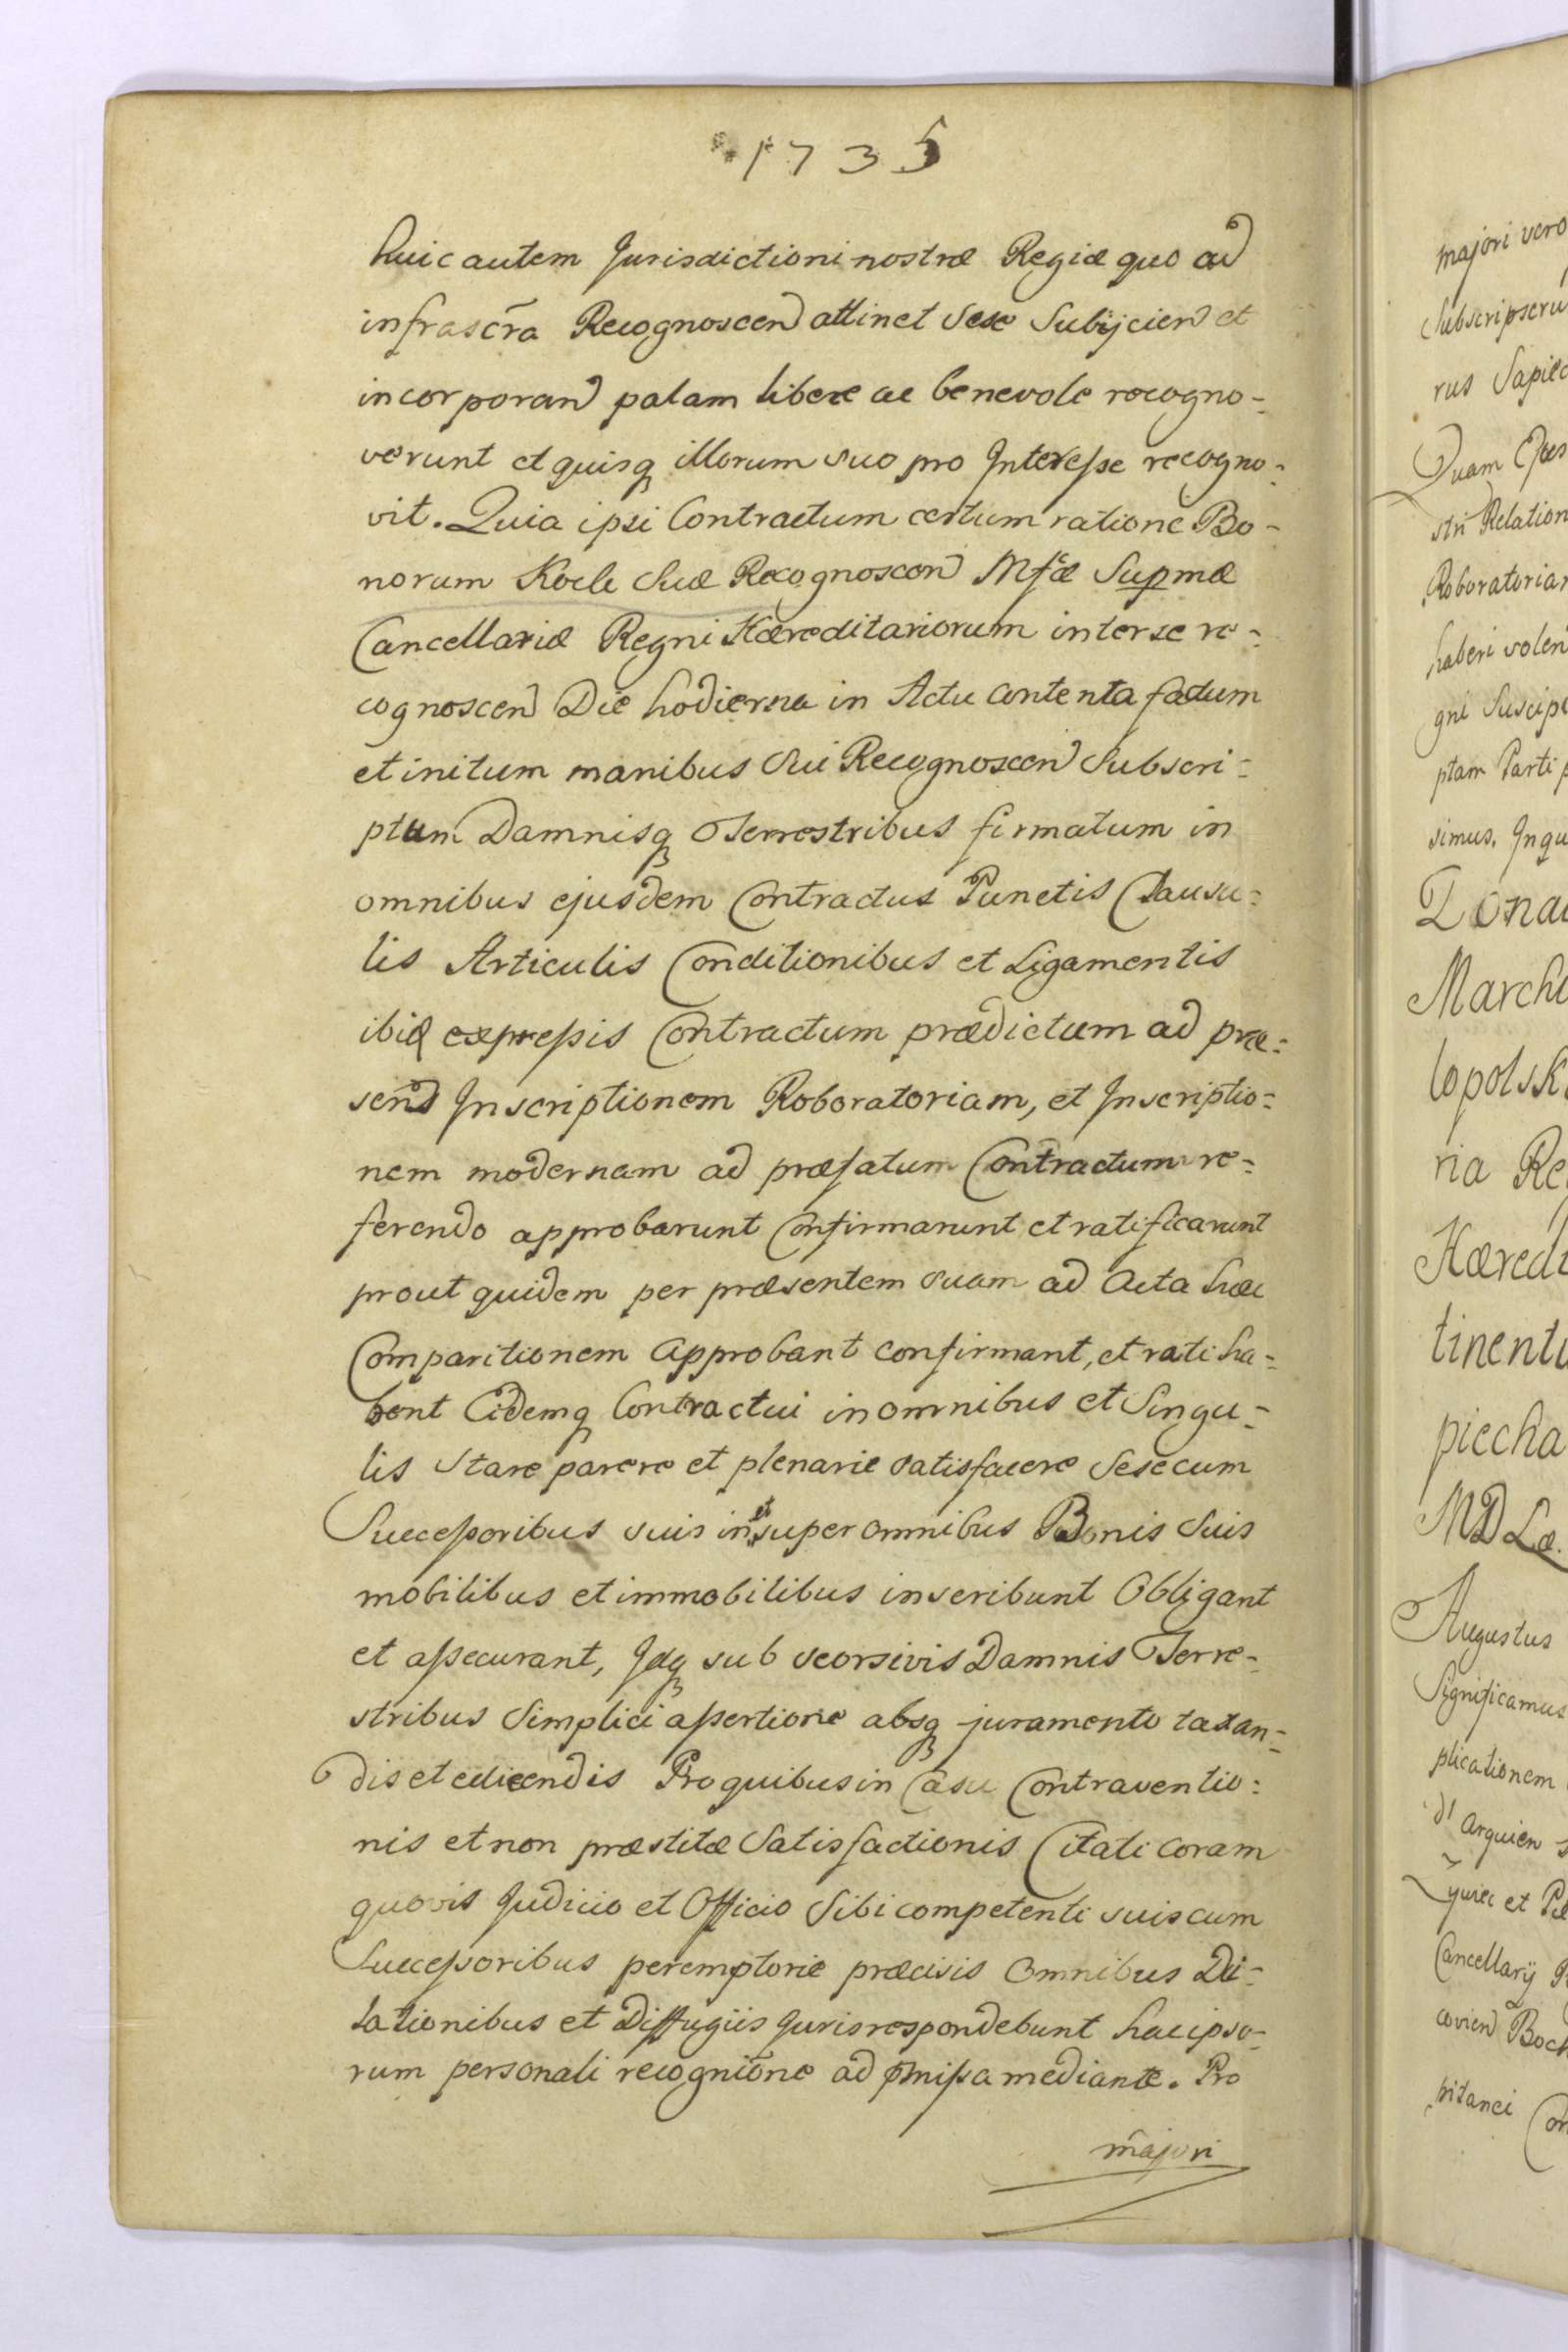 1735
huic autem Jurisdictioni nostræ Regiæ quo ad
infrascr̃a Recognoscen attinet sese Subijcien et
incorporan palam libere ac benevole recogno-
verunt et quisq illorum suo pro Interesse recogno-
vit. Quia ipsi Contractum certum ratione Bo-
norum Suæ Recognoscen Supmæ
Cancellariæ Regni Hæreditariorum inter se re-
cognoscen Die hodierna in Actu contenta factum
et initum manibus Sui Recognoscen Subscri-
ptum Damnisq Terrestribus firmatum in
omnibus ejusdem Contractus Punctis Clausu-
lis Articulis Conditionibus et Ligamentis
ibid expressis Contractum prædictum ad præ-
sens Inscriptionem Roboratoriam, et Inscriptio-
nem modernam ad præfatum Contractum re-
ferendo approbarunt Confirmarunt et ratificarunt
prout quidem per præsentem suam ad Acta hæc
Comparitionem Approbant confirmant, et ratiha-
bent Eidemq Contractui in omnibus et Singu-
lis stare parere et plenarie satisfacere Sese cum
Successoribus suis in et super omnibus Bonis Suis
mobilibus et immobilibus inscribunt Obligant
et assecurant, Idq sub seorsivis Damnis Terre-
stribus Simplici assertione absq juramento taxan-
dis et edicendis Pro quibus in Casu Contraventio-
nis et non præstitæ Satisfactionis Citati coram
quovis Judicio et Officio Sibi competenti suis cum
Successoribus peremptorie præcisis Omnibus Di-
lationibus et Diffugiis Juris respondebunt hac ipso-
rum personali recognitõne ad p̃missa mediante. Pro
majori
majori vero
Subscripseru
rus Sapiec
Quam
stri Relation
Roboratoriam
haberi volen
gni Suscipi
ptam Parti p
simus. In qu
Dona
March
lopolsk
ria Re
Hæredi
tinenti
piecha
MDLæ.
Augustus
Significamus
plicationem
d'Arquien
et
Cancellarij
covien Boch
pitanei Con